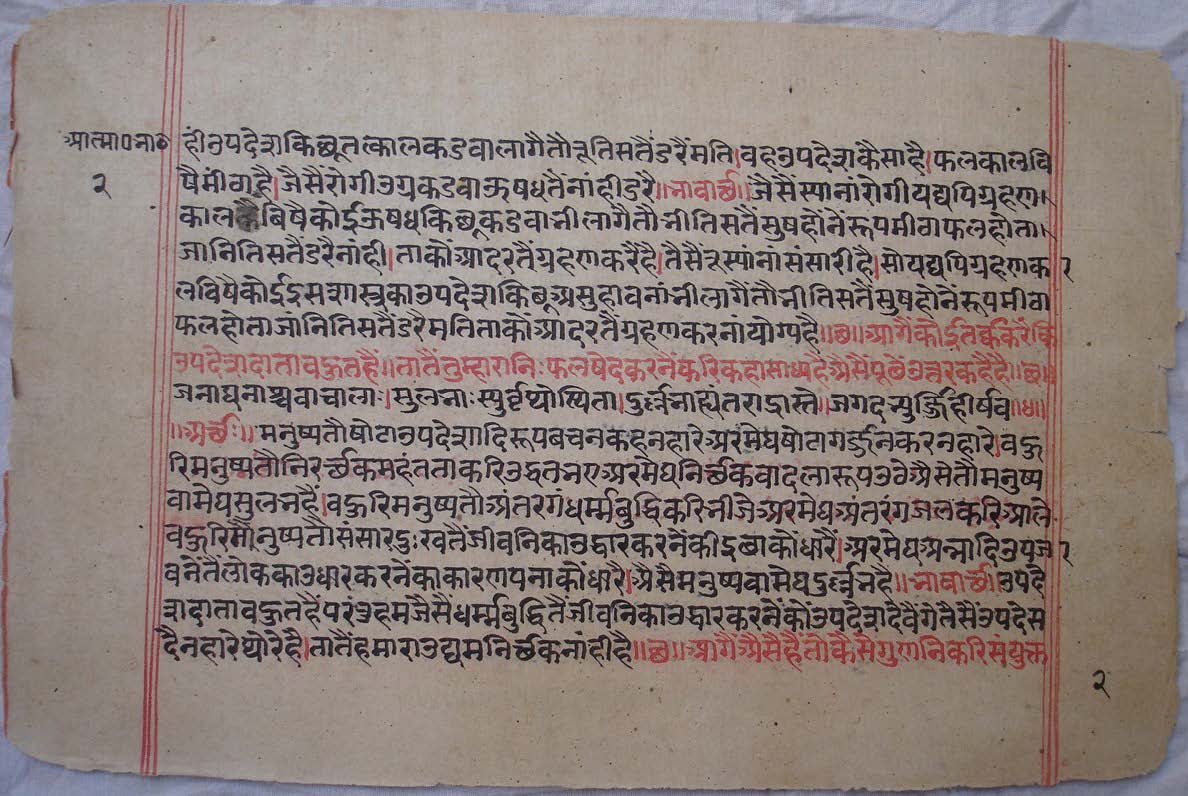 आत्मा॰ भा॰
२
हीं उपदेशकिछूतत्कालकडवालागैतौतूतिसतैंडरैंमति।वहउपदेशकैसाहै।फलकालवि
षैमीठाहै।जैसैंरोगीउग्रकडवाऊषधतैंनांहीडरै॥भावार्थ॥जैसैंस्यानांरोगीयद्यपिग्रहण।
कालविषैकोईऊषधकिछूकडवाभीलागैतौभीतिसतैंसुषहोनेंरूपमीठाफलहोता।
जानितिसतैंडरैनांही।ताकौंआदरतैंग्रहणकरैहै।तैसैंतूस्यांनासंसारीहै।सोयद्यपिग्रहणका २
लविषैकोईइसशास्त्रकाउपदेशकिछूअसुहावनांभीलागैंतौभीतिसतैंसुषहोनेंरूपमीठा
फलहोताजांनितिसतैंडरैमतिताकौंआदरतैंग्रहणकरनांयोग्यहै॥छ॥आगैंकोईतर्ककरैंकि
उपदेशदाताबहुतहैं॥तातैंतुम्हारानिःफलषेदकरनैंकरिकहासाध्यहैअैसैंपूछैंउत्तरकहैहै॥छ॥
जनाघनाश्चवाचालाः।सुलभाःस्युर्वृथोत्थिता।दुर्लभाह्यंतरार्द्रास्ते॥जगदभ्युज्जिहीर्षवः॥५॥
॥अर्थः॥मनुष्यतौषोटाउपदेशादिरूपबचनकहनहारेअरमेघषोटागर्जनकरनहारे।बहु
रिमनुष्यतौनिरर्थकमहंतताकरिउद्धतभएअरमेघनिर्थकवादलारूपउठेअैसेतौमनुष्य
वामेघसुलभहैं।बहुरिमनुष्यतौअंतरगंधर्म्मबुद्धिकरिभीजेअरमेघअंतरंगजलकरिआले
बहुरिमनुष्यतौसंसारदुःखतैंजीवनिकाउद्धारकरनेंकीइछाकोंधारैं।अरमेघअन्नादिउपजा २
वनेतैंलोककाउधारकरनेंकाकारणपनाकौंधारै।अैसैमनुष्यवामेघदुर्लभहै॥भावार्थ।उपदे
शदाताबहुतहैंपरंतुहमजैसैंधर्म्मबुद्धितैंजीवनिकाउद्धारकरनेंकोंउपदेशदेवैगेतैसैंउपदेस
दैनहारेथोरेहै।तातैंहमाराउद्यमनिर्थकनांहीहै॥छ॥आगैंअैसैहैतोकैसेगुणनिकरिसंयुक्त
२